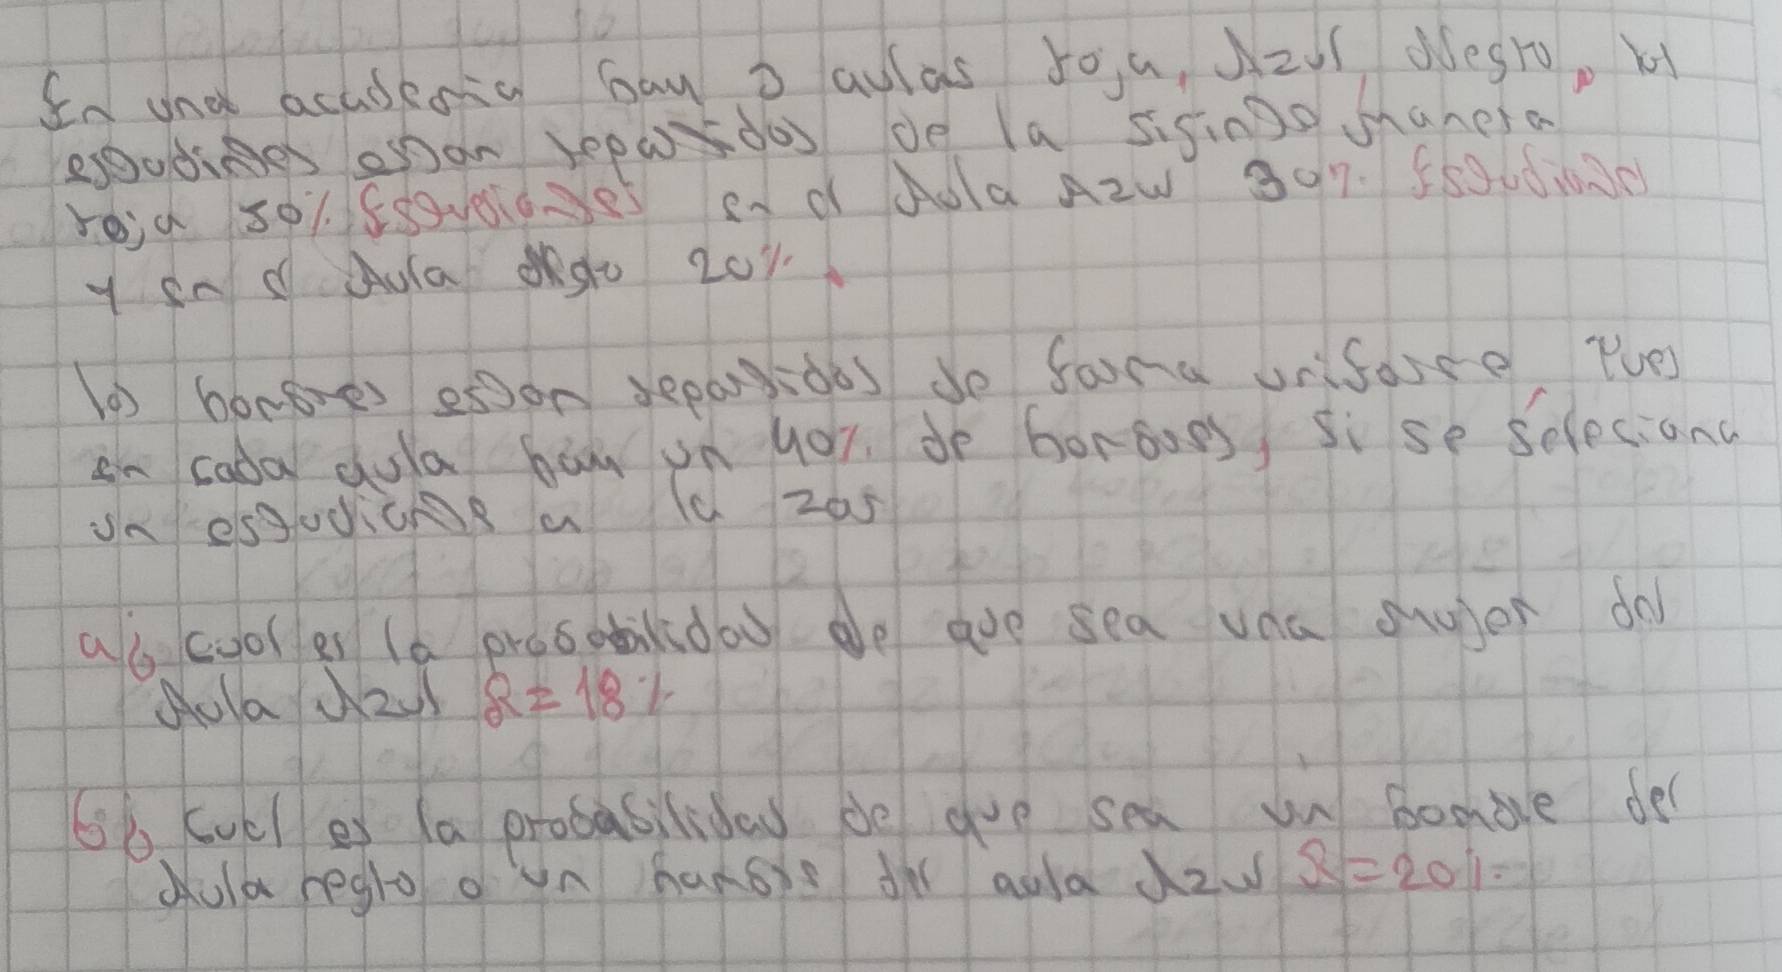 En una academia hay 3 aulas roja, Azul, Negro, los
estudintes estan repartidos de la siginte manera
roja 50% Estudiantes en el Aula Azul 30% Estudiantes
y en el Aula negro 20%.
los hombres estan repartidos de forma uniforme, Pues
en cada aula hay un 40% de hombres, si se selesiona
un estudiante a la zar
a¿ cual es la probabilidad de que sea una mujer del
Aula Azul R=18%
b¿ Cual es la probabilidad de que sea un hombre del
Aula negro o un hambre del aula Azul R=20%